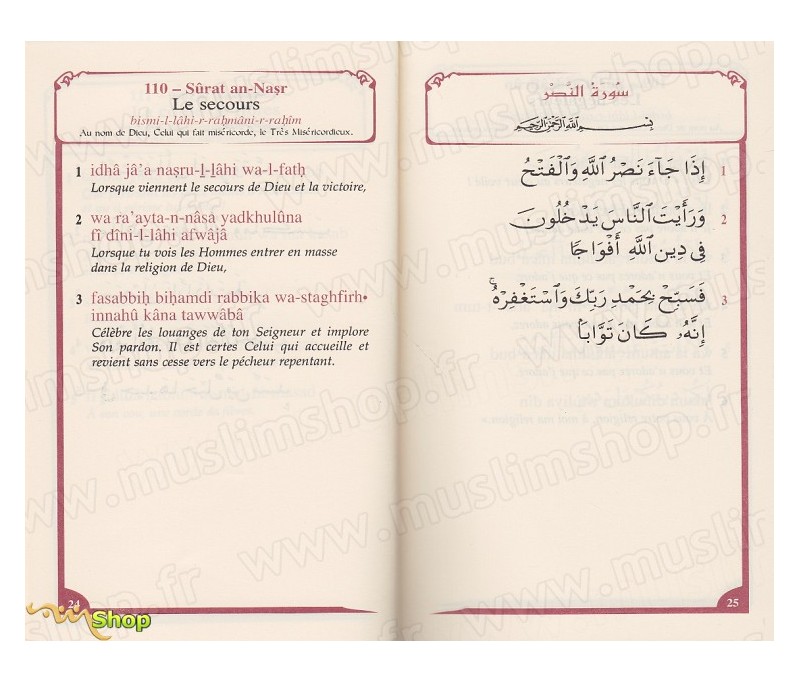 110 – Sûrat an-Naṣr
Le secours
bismi-l-lâhi-r-raḥmâni-r-raḥîm
Au nom de Dieu, Celui qui fait miséricorde, le Très Miséricordieux.
1 idhâ jâ’a naṣru-l-lâhi wa-l-fatḥ
Lorsque viennent le secours de Dieu et la victoire,
2 wa ra’ayta-n-nâsa yadkhulûna
fî dîni-l-lâhi afwâjâ
Lorsque tu vois les Hommes entrer en masse
dans la religion de Dieu,
3 fasabbiḥ biḥamdi rabbika wa-staghfirh•
innahû kâna tawwâbâ
Célèbre les louanges de ton Seigneur et implore
Son pardon. Il est certes Celui qui accueille et
revient sans cesse vers le pécheur repentant.
24
سُورَةُ النَّصْرِ
بِسْمِ اللَّهِ الرَّحْمَٰنِ الرَّحِيمِ
1 إِذَا جَآءَ نَصْرُ اللَّهِ وَالْفَتْحُ
2 وَرَأَيْتَ النَّاسَ يَدْخُلُونَ
فِي دِينِ اللَّهِ أَفْوَاجًا
3 فَسَبِّحْ بِحَمْدِ رَبِّكَ وَاسْتَغْفِرْهُ ۚ
إِنَّهُۥ كَانَ تَوَّابًا
25
www.muslimshop.fr
Shop